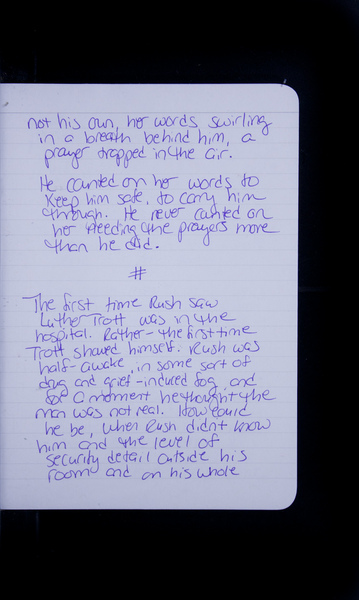 not his own, her words swirling
in a breath behind him, a
prayer trapped in the air.
He counted on her words to
keep him safe, to carry him
through. He never counted on
her needing the prayers more
than he did.
#
The first time Rush saw
Luther Trott was in the
hospital. Rather - the first time
Trott showed himself. Rush was
half-awake, in some sort of
drug and grief-induced fog, and
for a moment he thought the
man was not real. How could
he be, when Rush didn't know
him and the level of
security detail outside his
room and on his whole